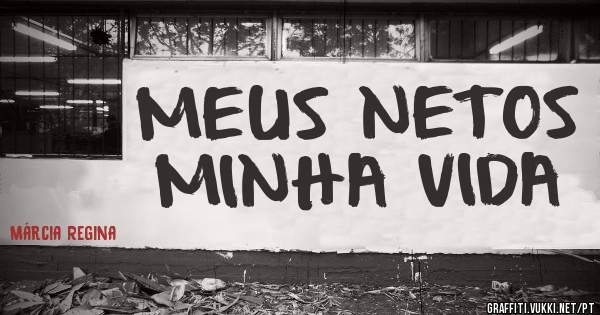 MEUS NETOS
MINHA VIDA
MÁRCIA REGINA
GRAFFITI.VUKKI.NET/PT